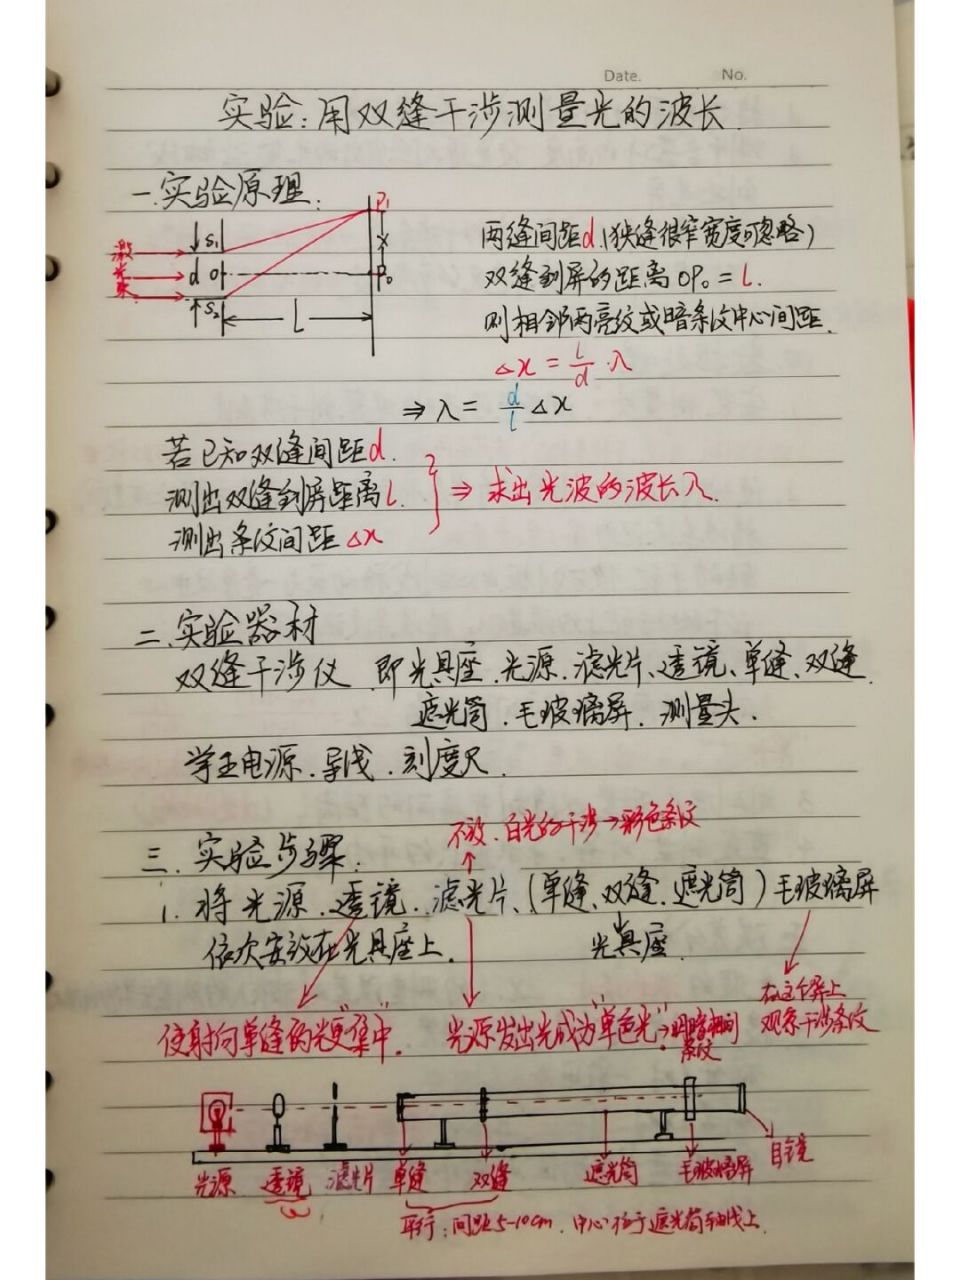 Date.    No.
实验:用双缝干涉测量光的波长
一.实验原理:
激光束
S₁
d
O
S₂
L
P₁
x
P₀
两缝间距d.(狭缝很窄宽度可忽略)
双缝到屏的距离OP₀=l.
则相邻两亮纹或暗条纹中心间距.
△x = l/d·λ
⇒ λ = d/l △x
若已知双缝间距d.
测出双缝到屏距离l.
测出条纹间距△x
} ⇒ 求出光波的波长λ.
二.实验器材
双缝干涉仪.即光具座.光源.滤光片、透镜、单缝、双缝.
遮光筒.毛玻璃屏.测量头.
学生电源.导线.刻度尺.
三.实验步骤:
不放.白光的干涉→彩色条纹
1.将光源.透镜.滤光片、(单缝、双缝、遮光筒)毛玻璃屏
依次安放在光具座上.
光具座.
使射向单缝的光更"集中".
光源发出光成为"单色光"→明暗相间条纹
在这个屏上
观察干涉条纹
光源 透镜 滤光片 单缝 双缝 遮光筒 毛玻璃屏 目镜
平行:间距5-10cm.中心位于遮光筒轴线上.